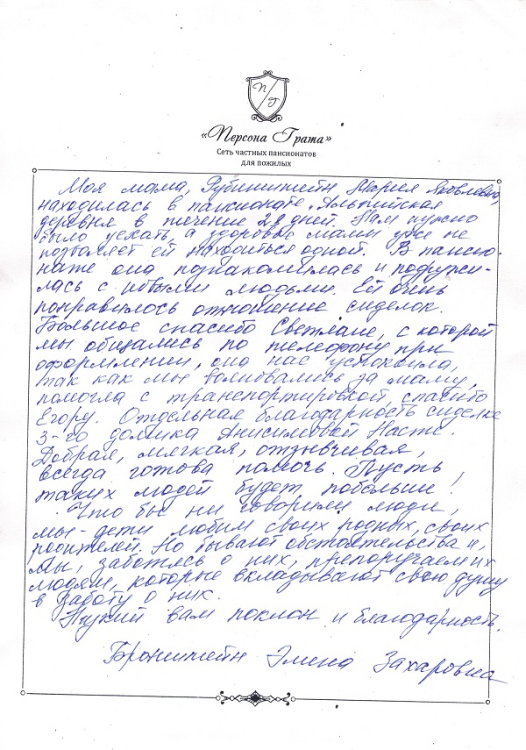 П
Г
«Персона Грата»
Сеть частных пансионатов
для пожилых
Моя мама, Рубинштейн Мария Яковлевна,
находилась в пансионате "Альпийская
деревня в течение 28 дней. Нам нужно
было уехать, а здоровье мамы уже не
позволяет ей находиться одной. В пансио-
нате она познакомилась и подружи-
лась с новыми людьми. Ей очень
понравилось отношение сиделок.
Большое спасибо Светлане, с которой
мы общались по телефону при
оформлении, она нас успокоила,
так как мы волновались за маму,
помогла с транспортировкой, спасибо
Егору. Отдельная благодарность сиделке
3-го домика Анисимовой Насте.
Добрая, мягкая, отзывчивая,
всегда готова помочь. Пусть
таких людей будет побольше!
Что бы ни говорили люди,
мы - дети любим своих родных, своих
родителей. Но бывают обстоятельства и,
мы, заботясь о них, препоручаем их
людям, которые вкладывают свою душу
в заботу о них.
Низкий вам поклон и благодарность.
Бронштейн Элина Захаровна